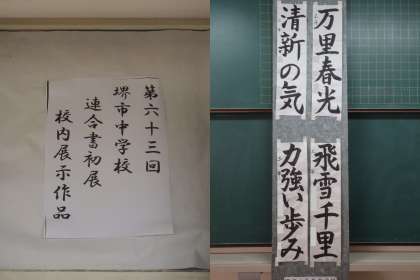 第六十三回
堺市中学校
連合書初展
校内展示作品
万里春光
清新の気
飛雪千里
力強い歩み